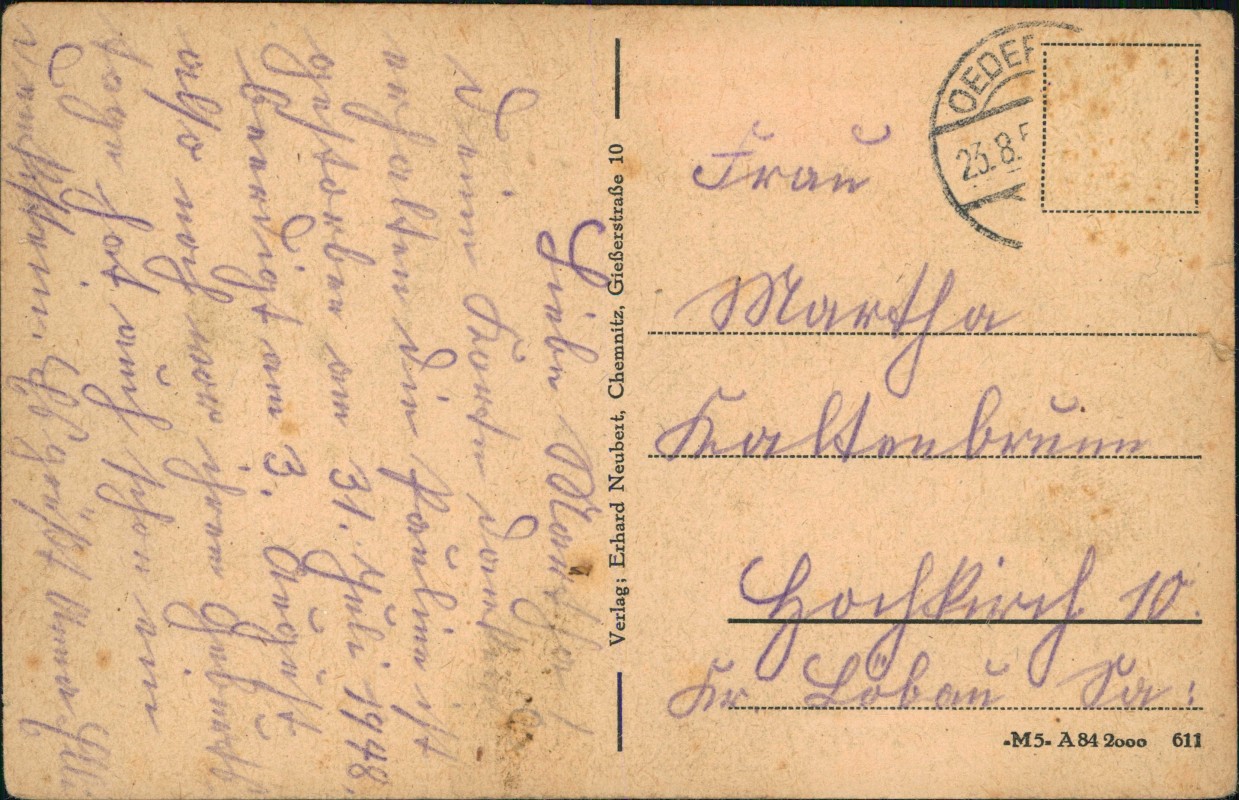 Liebe Martha!
Deine Karte dankend
erhalten die Pauline ist
gestorben am 31. Juli 1948.
Beerdigt am 3. August
also noch vor ihrem Geburts
tage hat auch schon ein
Es grüßt
Verlag; Erhard Neubert, Chemnitz, Gießerstraße 10
OEDER
23.8.5
Frau
Martha
Kaltenbrunn
Hochkirch 10.
Kr. Löbau Sa:
-M5- A 84 2000 611